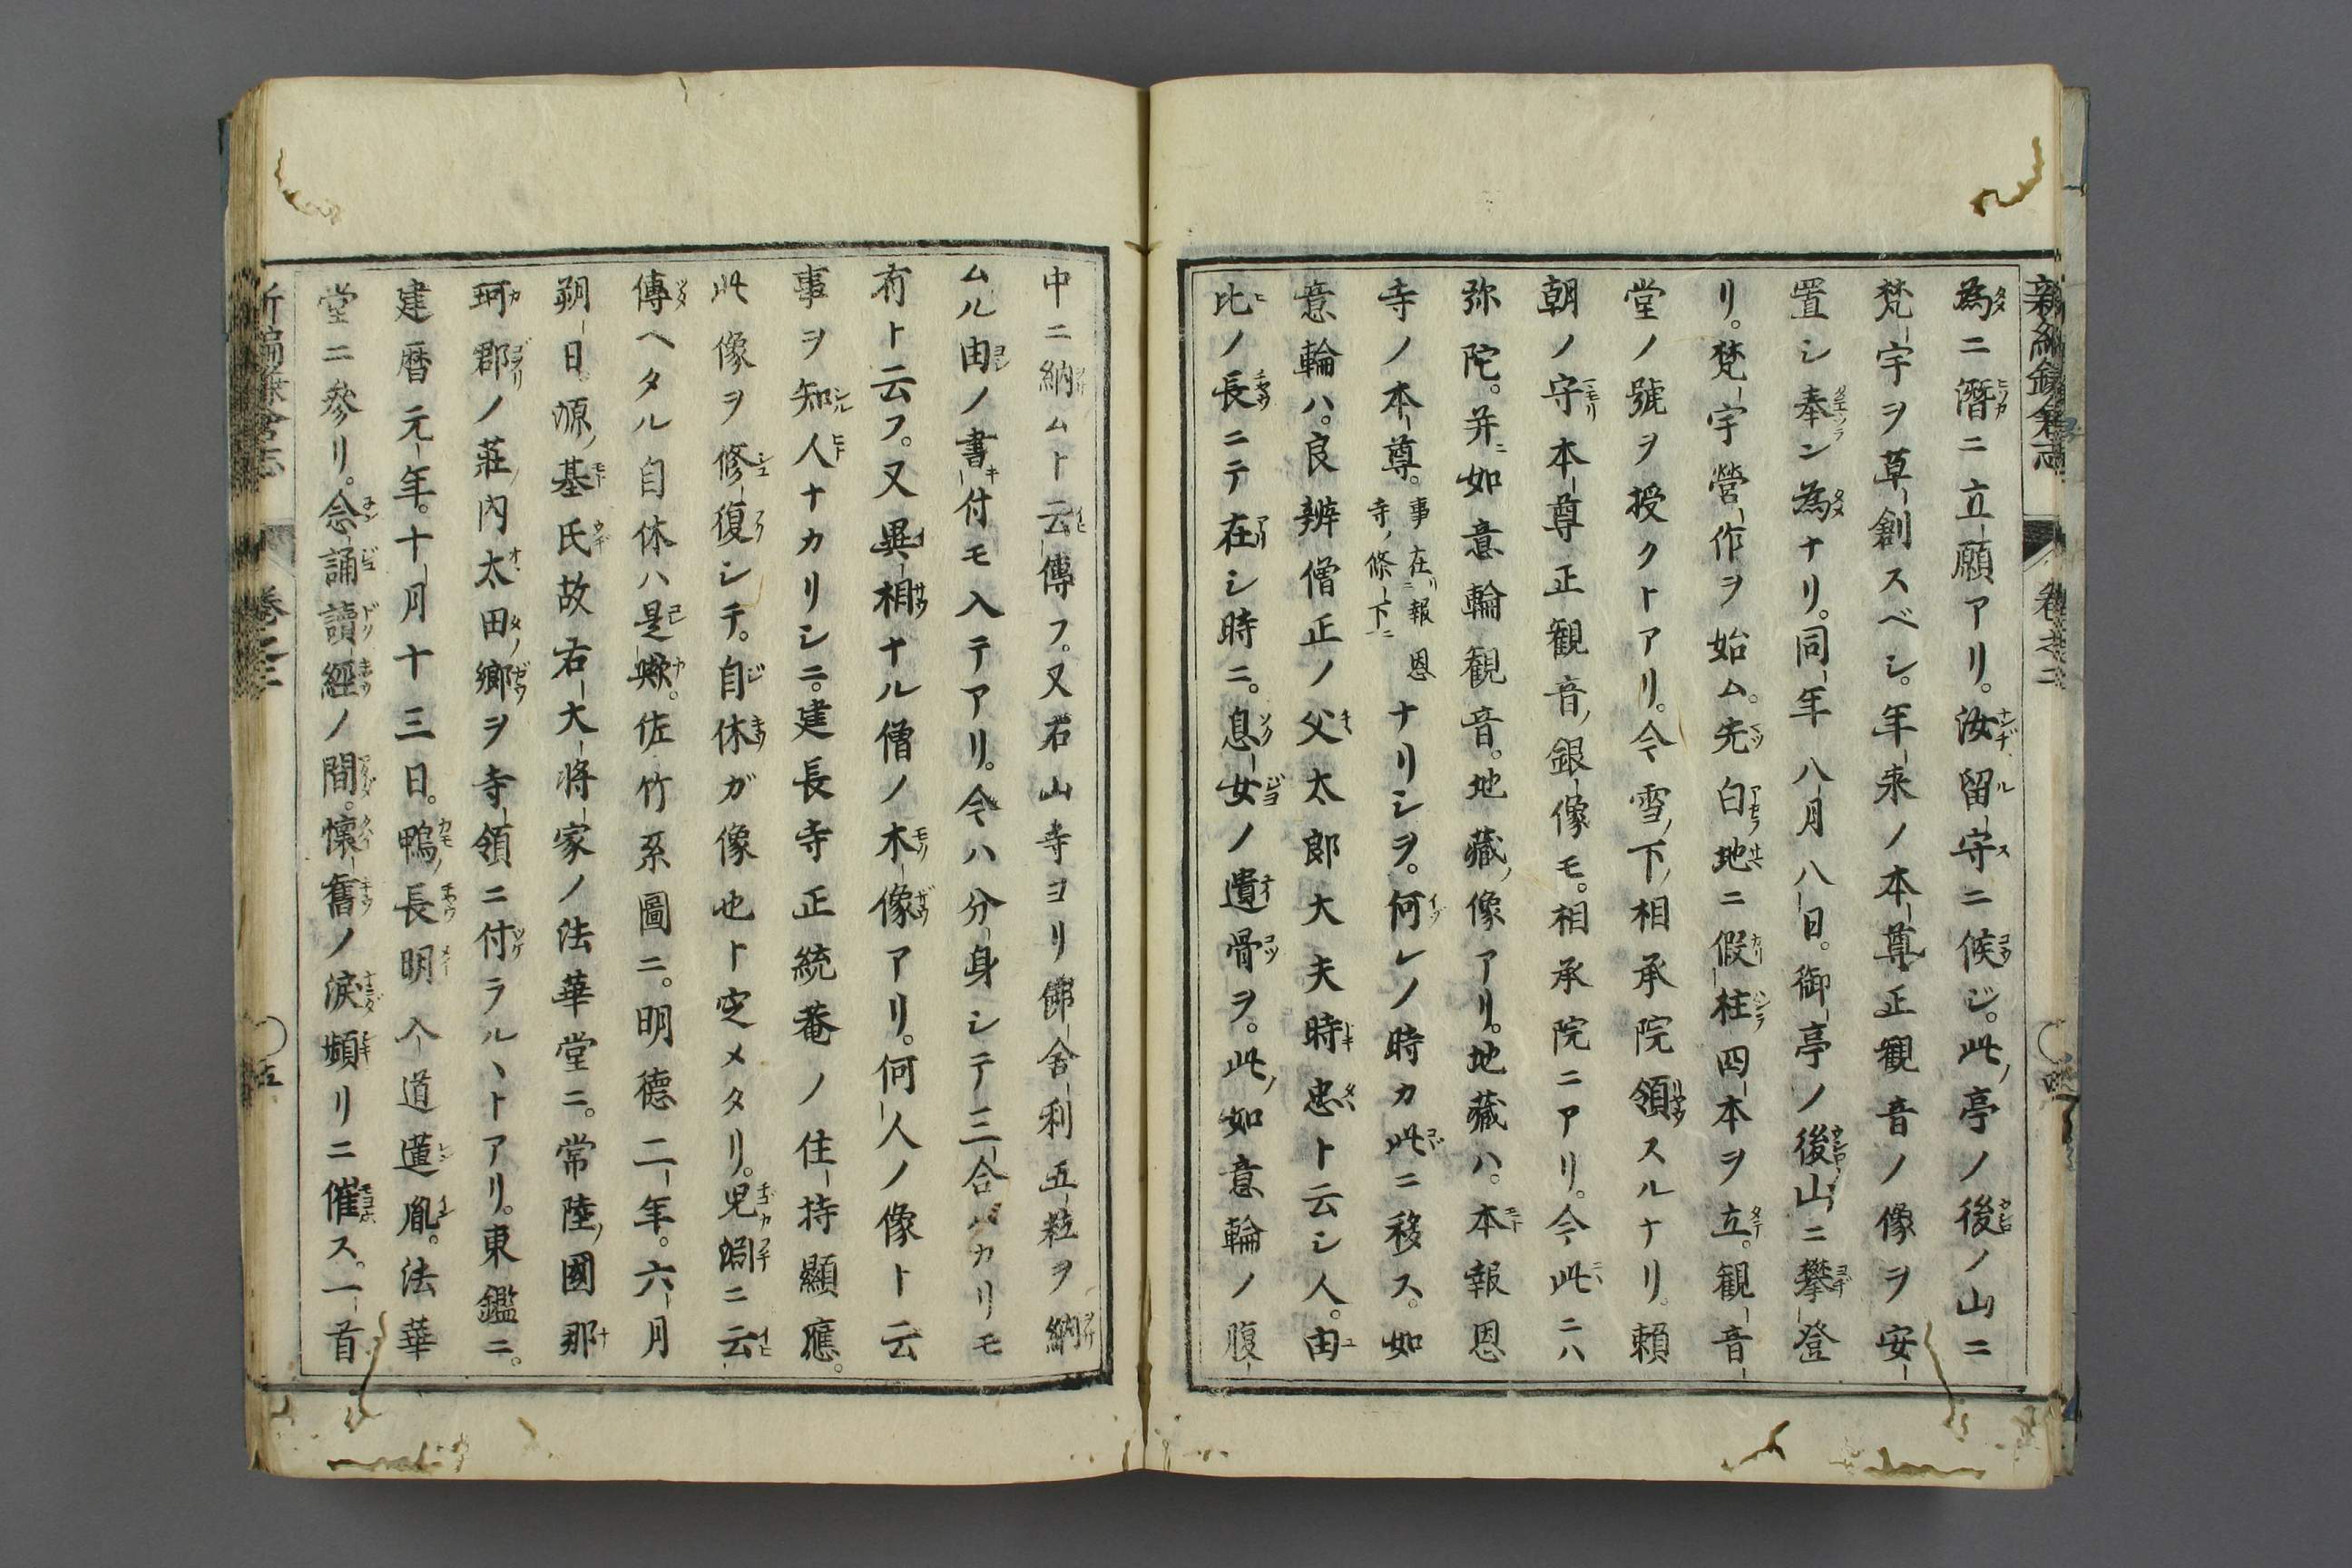 新編鎌倉志 卷之二 ○四
為ニ潛ニ立願アリ。汝留守ニ候ジ。此亭ノ後ノ山ニ
梵宇ヲ草創スベシ。年来ノ本尊正観音ノ像ヲ安
置シ奉ン為ナリ。同年八月八日。御亭ノ後山ニ攀登
リ。梵宇營作ヲ始ム。先白地ニ假柱四本ヲ立。観音
堂ノ號ヲ授クトアリ。今雪ノ下相承院領スルナリ。頼
朝ノ守本尊正観音ノ銀像モ。相承院ニアリ。今此ニハ
弥陀。并ニ如意輪観音。地藏ノ像アリ。地藏ハ。本報恩
寺ノ本尊。事在リ報恩寺ノ條下ニナリシヲ。何レノ時カ此ニ移ス。如
意輪ハ。良辨僧正ノ父太郎大夫時忠ト云シ人。由
比ノ長ニテ在シ時ニ。息女ノ遺骨ヲ。此ノ如意輪ノ腹
中ニ納ムト云傳フ。又石山寺ヨリ佛舍利五粒ヲ納
ムル由ノ書付モ入テアリ。今ハ分身シテ三合バカリモ
有ト云フ。又異相ナル僧ノ木像アリ。何人ノ像ト云
事ヲ知人ナカリシニ。建長寺正統菴ノ住持顯應。
此像ヲ修復シテ。自休ガ像也ト定メタリ。兒淵ニ云
傳ヘタル自休ハ是歟。佐竹系圖ニ。明德二年。六月
朔日。源ノ基氏故右大將家ノ法華堂ニ。常陸ノ國那
珂郡ノ莊内太田ノ郷ヲ寺領ニ付ラルヽトアリ。東鑑ニ。
建暦元年。十月十三日。鴨ノ長明入道蓮胤。法華
堂ニ參リ。念誦讀經ノ間。懐舊ノ涙頻リニ催ス。一首
新編鎌倉志 卷之二 ○五